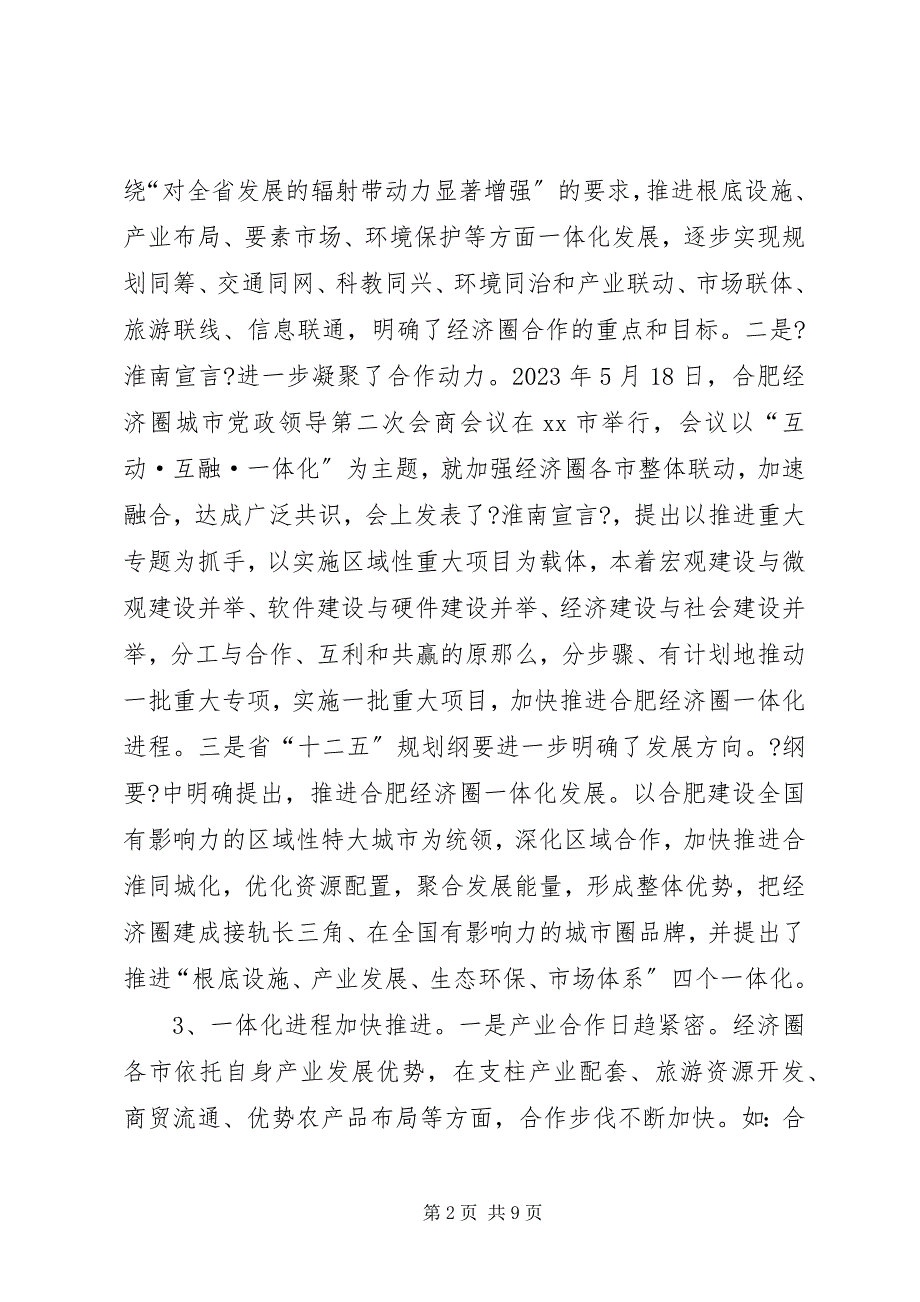 绕“对全省发展的辐射带动力显著增强〞的要求，推进根底设施、
产业布局、要素市场、环境保护等方面一体化发展，逐步实现规
划同筹、交通同网、科教同兴、环境同治和产业联动、市场联体、
旅游联线、信息联通，明确了经济圈合作的重点和目标。二是?
淮南宣言?进一步凝聚了合作动力。2023 年 5 月 18 日，合肥经
济圈城市党政领导第二次会商会议在 xx 市举行，会议以“互
动·互融·一体化〞为主题，就加强经济圈各市整体联动，加速
融合，达成广泛共识，会上发表了?淮南宣言?，提出以推进重大
专题为抓手，以实施区域性重大项目为载体，本着宏观建设与微
观建设并举、软件建设与硬件建设并举、经济建设与社会建设并
举，分工与合作、互利和共赢的原那么，分步骤、有计划地推动
一批重大专项，实施一批重大项目，加快推进合肥经济圈一体化
进程。三是省“十二五〞规划纲要进一步明确了发展方向。?纲
要?中明确提出，推进合肥经济圈一体化发展。以合肥建设全国
有影响力的区域性特大城市为统领，深化区域合作，加快推进合
淮同城化，优化资源配置，聚合发展能量，形成整体优势，把经
济圈建成接轨长三角、在全国有影响力的城市圈品牌，并提出了
推进“根底设施、产业发展、生态环保、市场体系〞四个一体化。
3、一体化进程加快推进。一是产业合作日趋紧密。经济圈
各市依托自身产业发展优势，在支柱产业配套、旅游资源开发、
商贸流通、优势农产品布局等方面，合作步伐不断加快。如：合
第 2 页 共 9 页